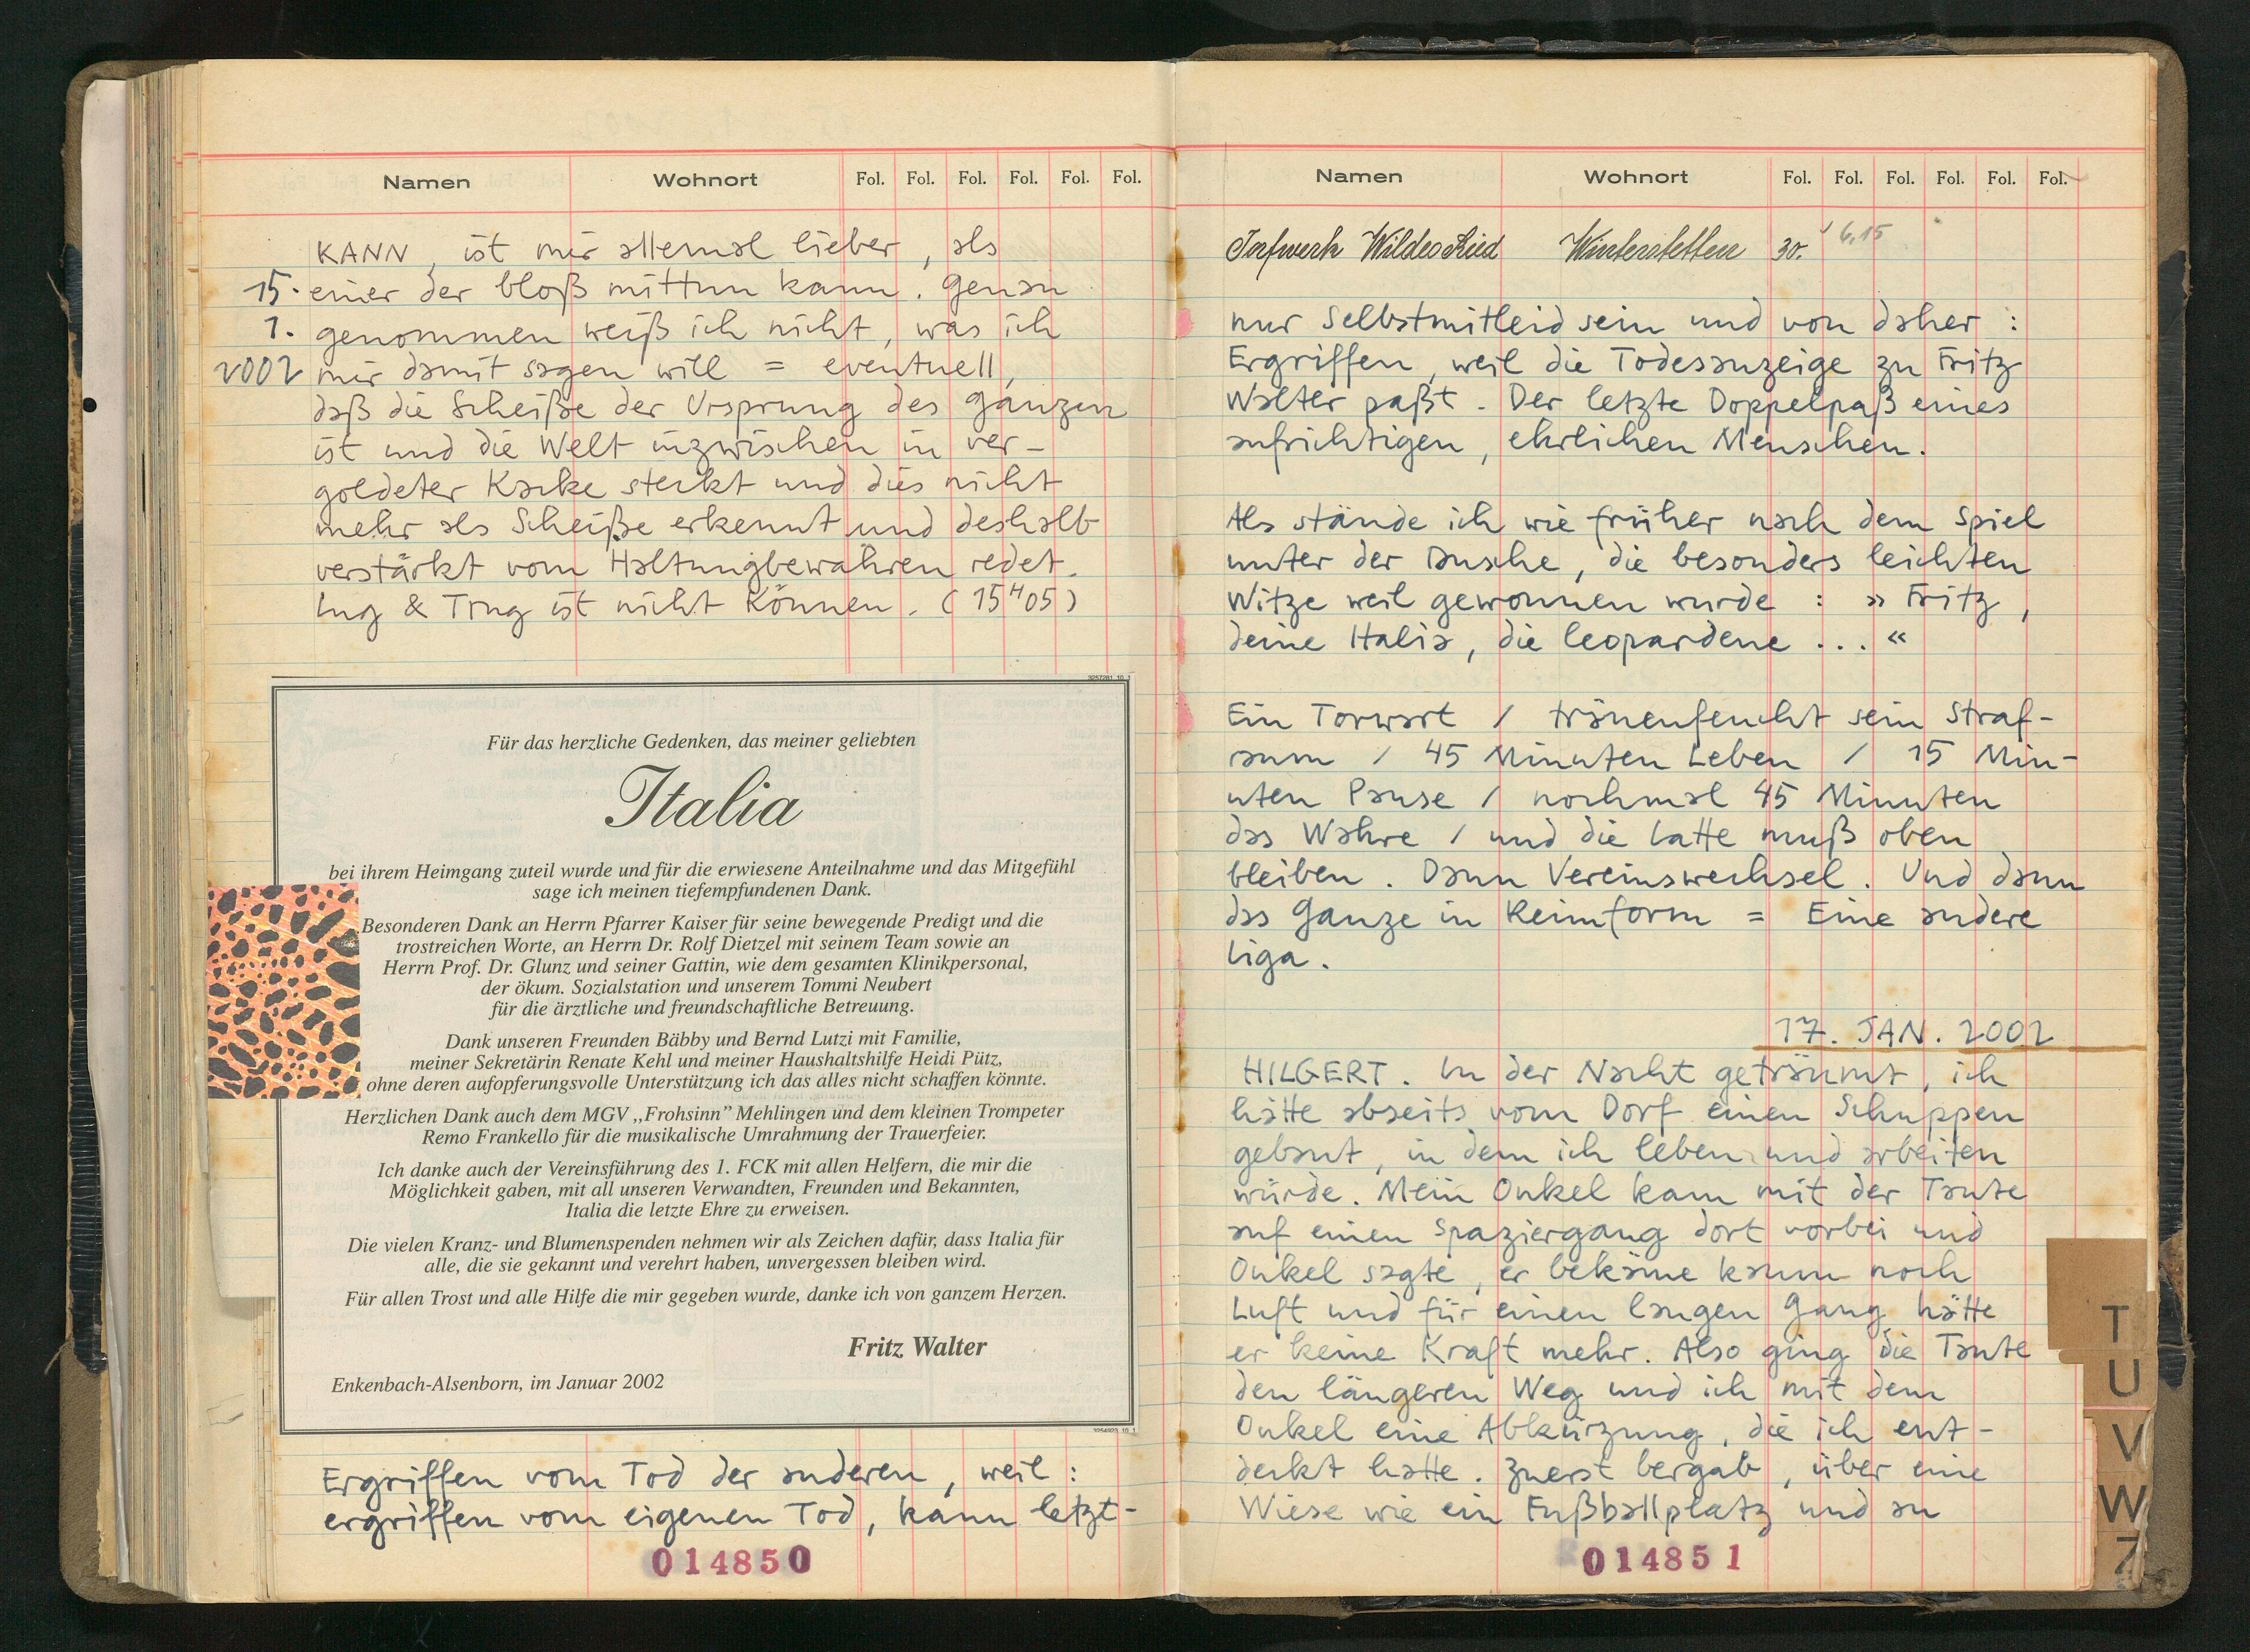 Namen Wohnort Fol. Fol. Fol. Fol. Fol. Fol.
KANN, ist mir allemal lieber, als
15. einer der bloß mittun kann. Genau
1. genommen weiß ich nicht, was ich
2002 mir damit sagen will = eventuell,
daß die Scheiße der Ursprung des Ganzen
ist und die Welt inzwischen in ver-
goldeter Kacke steckt und dies nicht
mehr als Scheiße erkennt und deshalb
verstärkt vom Haltungbewahren redet.
Lug & Trug ist nicht Können. (15H05)
3257281_10_1
Für das herzliche Gedenken, das meiner geliebten
Italia
bei ihrem Heimgang zuteil wurde und für die erwiesene Anteilnahme und das Mitgefühl
sage ich meinen tiefempfundenen Dank.
Besonderen Dank an Herrn Pfarrer Kaiser für seine bewegende Predigt und die
trostreichen Worte, an Herrn Dr. Rolf Dietzel mit seinem Team sowie an
Herrn Prof. Dr. Glunz und seiner Gattin, wie dem gesamten Klinikpersonal,
der ökum. Sozialstation und unserem Tommi Neubert
für die ärztliche und freundschaftliche Betreuung.
Dank unseren Freunden Bäbby und Bernd Lutzi mit Familie,
meiner Sekretärin Renate Kehl und meiner Haushaltshilfe Heidi Pütz,
ohne deren aufopferungsvolle Unterstützung ich das alles nicht schaffen könnte.
Herzlichen Dank auch dem MGV „Frohsinn” Mehlingen und dem kleinen Trompeter
Remo Frankello für die musikalische Umrahmung der Trauerfeier.
Ich danke auch der Vereinsführung des 1. FCK mit allen Helfern, die mir die
Möglichkeit gaben, mit all unseren Verwandten, Freunden und Bekannten,
Italia die letzte Ehre zu erweisen.
Die vielen Kranz- und Blumenspenden nehmen wir als Zeichen dafür, dass Italia für
alle, die sie gekannt und verehrt haben, unvergessen bleiben wird.
Für allen Trost und alle Hilfe die mir gegeben wurde, danke ich von ganzem Herzen.
Fritz Walter
Enkenbach-Alsenborn, im Januar 2002
Ergriffen vom Tod der anderen, weil:
ergriffen vom eigenen Tod, kann letzt-
014850
Namen Wohnort Fol. Fol. Fol. Fol. Fol. Fol.
Torfwerk Wildes Ried Winterstetten 30. 6,15
nur Selbstmitleid sein und von daher:
Ergriffen, weil die Todesanzeige zu Fritz
Walter paßt. Der letzte Doppelpaß eines
aufrichtigen, ehrlichen Menschen.
Als stände ich wie früher nach dem Spiel
unter der Dusche, die besonders leichten
Witze weil gewonnen wurde: » Fritz,
deine Italia, die leopardene ... «
Ein Torwart / tränenfeucht sein Straf-
raum / 45 Minuten Leben / 15 Min-
uten Pause / nochmal 45 Minuten
das Wahre / und die Latte muß oben
bleiben. Dann Vereinswechsel. Und dann
das Ganze in Reimform = Eine andere
Liga.
17. JAN. 2002
HILGERT. In der Nacht geträumt, ich
hätte abseits vom Dorf einen Schuppen
gebaut, in dem ich leben und arbeiten
würde. Mein Onkel kam mit der Tante
auf einen Spaziergang dort vorbei und
Onkel sagte, er bekäme kaum noch
Luft und für einen langen Gang hätte
er keine Kraft mehr. Also ging die Tante
den längeren Weg und ich mit dem
Onkel eine Abkürzung, die ich ent-
deckt hatte. Zuerst bergab, über eine
Wiese wie ein Fußballplatz und an
014851
T
U
V
W
Z